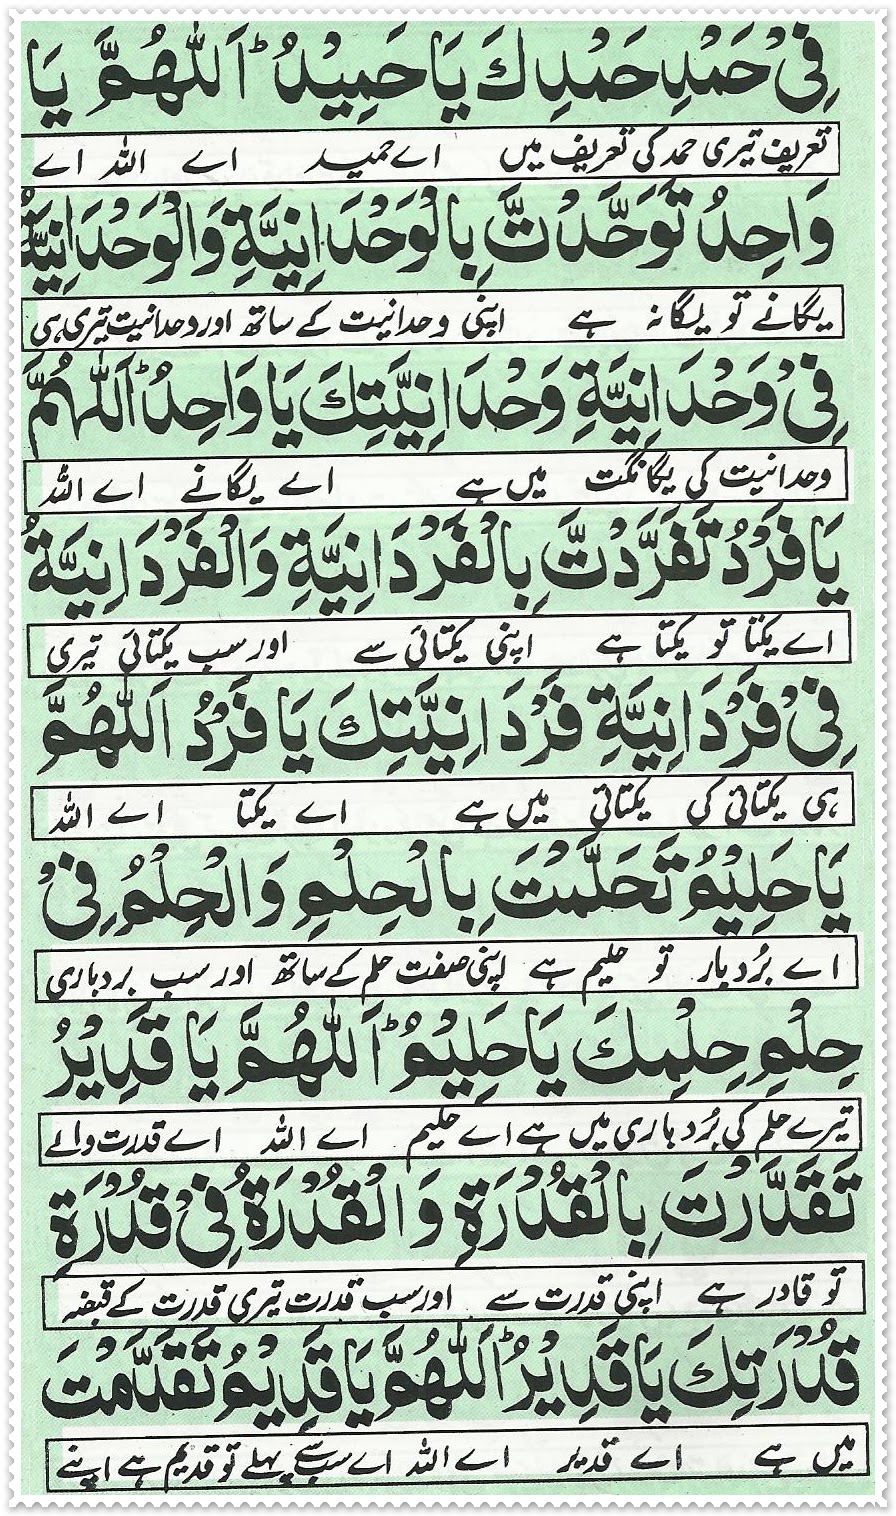 فِيْ حَمْدِ حَمْدِكَ يَا حَمِيْدُ ؕ اَللّٰهُمَّ يَا
تعریف تیری حمد کی تعریف میں اے حمید اے اللہ اے
وَاحِدُ تَوَحَّدْتَّ بِالْوَحْدَانِيَّةِ وَالْوَحْدَانِيَّةُ
یگانے تو یگانہ ہے اپنی وحدانیت کے ساتھ اور وحدانیت تیری ہی
فِيْ وَحْدَانِيَّةِ وَحْدَانِيَّتِكَ يَا وَاحِدُ ؕ اَللّٰهُمَّ
وحدانیت کی یگانگت میں ہے اے یگانے اے اللہ
يَا فَرْدُ تَفَرَّدْتَّ بِالْفَرْدَانِيَّةِ وَالْفَرْدَانِيَّةُ
اے یکتا تو یکتا ہے اپنی یکتائی سے اور سب یکتائی تیری
فِيْ فَرْدَانِيَّةِ فَرْدَانِيَّتِكَ يَا فَرْدُ اَللّٰهُمَّ
ہی یکتائی کی یکتائی میں ہے اے یکتا اے اللہ
يَا حَلِيْمُ تَحَلَّمْتَ بِالْحِلْمِ وَالْحِلْمُ فِيْ
اے بُردبار تو حلیم ہے اپنی صفت حلم کے ساتھ اور سب بردباری
حِلْمِ حِلْمِكَ يَا حَلِيْمُ ؕ اَللّٰهُمَّ يَا قَدِيْرُ
تیرے حلم کی بُردباری میں ہے اے حلیم اے اللہ اے قدرت والے
تَقَدَّرْتَ بِالْقُدْرَةِ وَالْقُدْرَةُ فِيْ قُدْرَةِ
تو قادر ہے اپنی قدرت سے اور سب قدرت تیری قدرت کے قبضہ
قُدْرَتِكَ يَا قَدِيْرُ ؕ اَللّٰهُمَّ يَا قَدِيْمُ تَقَدَّمْتَ
میں ہے اے قدیر اے اللہ اے سب سے پہلے تو قدیم ہے اپنے